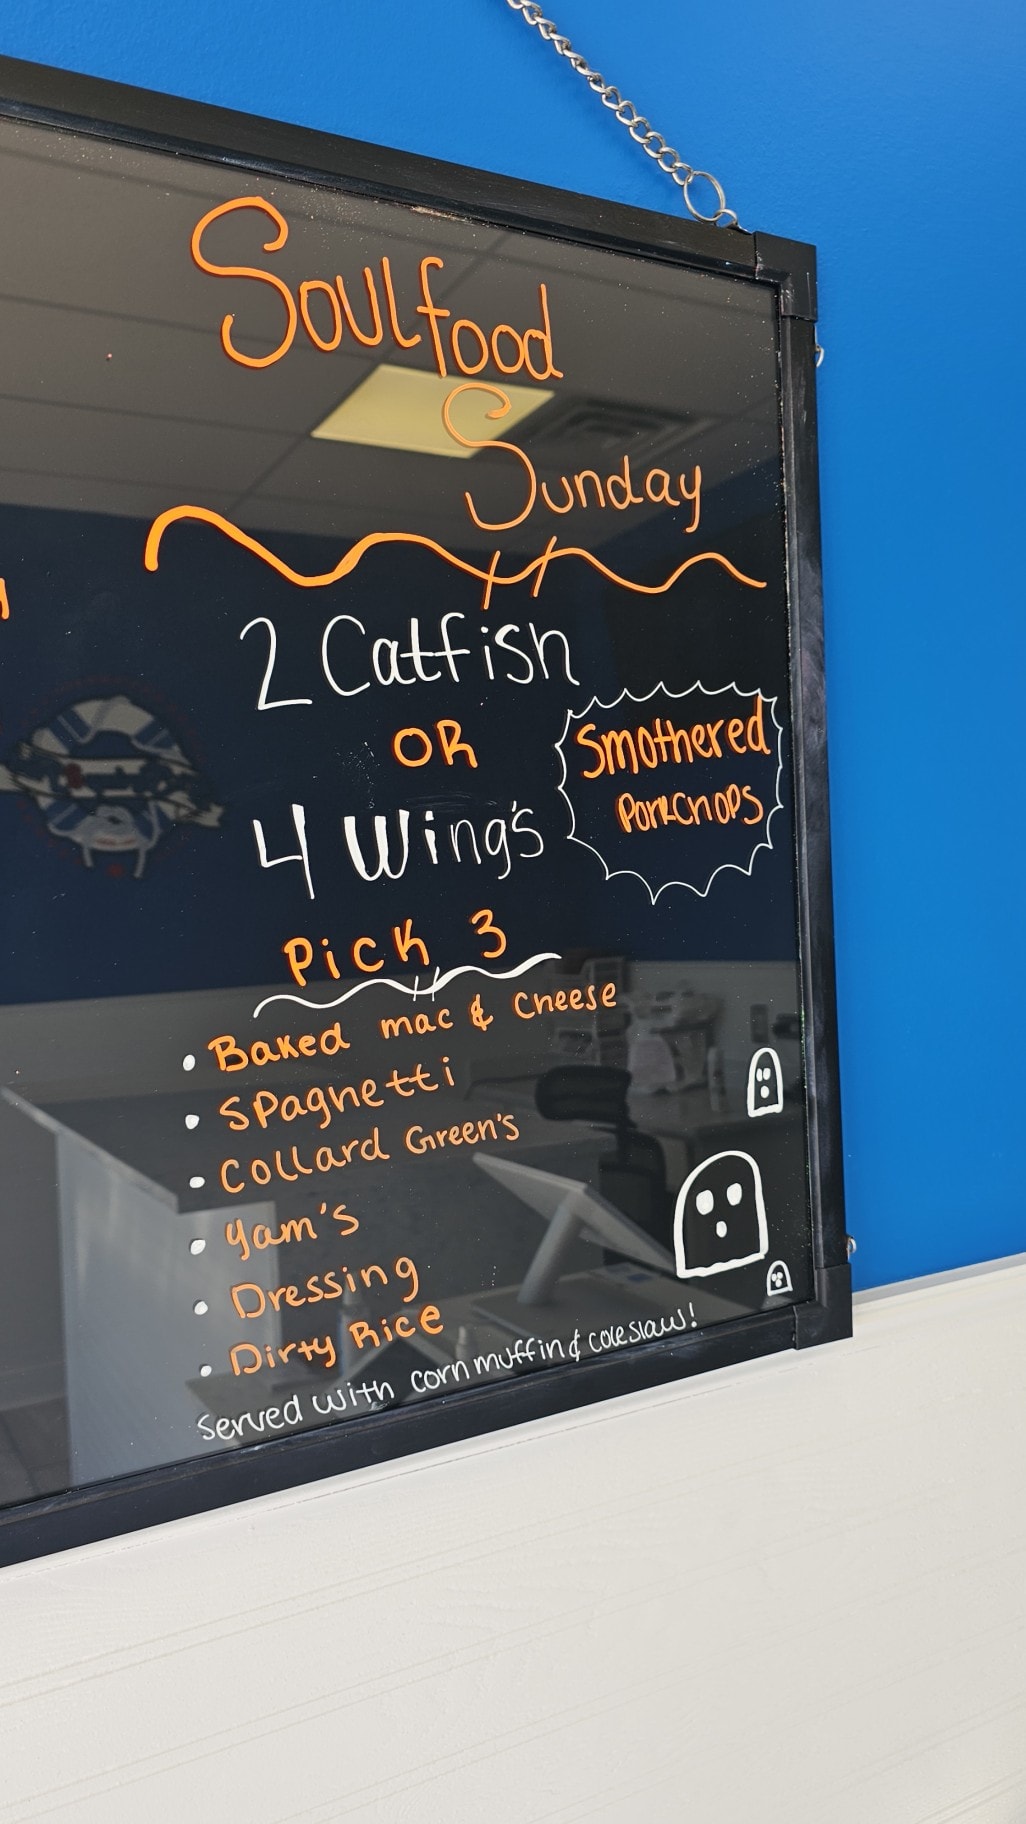 Soulfood
Sunday
2 Catfish
OR
4 Wing's
Smothered
PorkChops
Pick 3
• Baked mac & Cheese
• Spaghetti
• Collard Green's
• Yam's
• Dressing
• Dirty Rice
served with corn muffin & coleslaw!